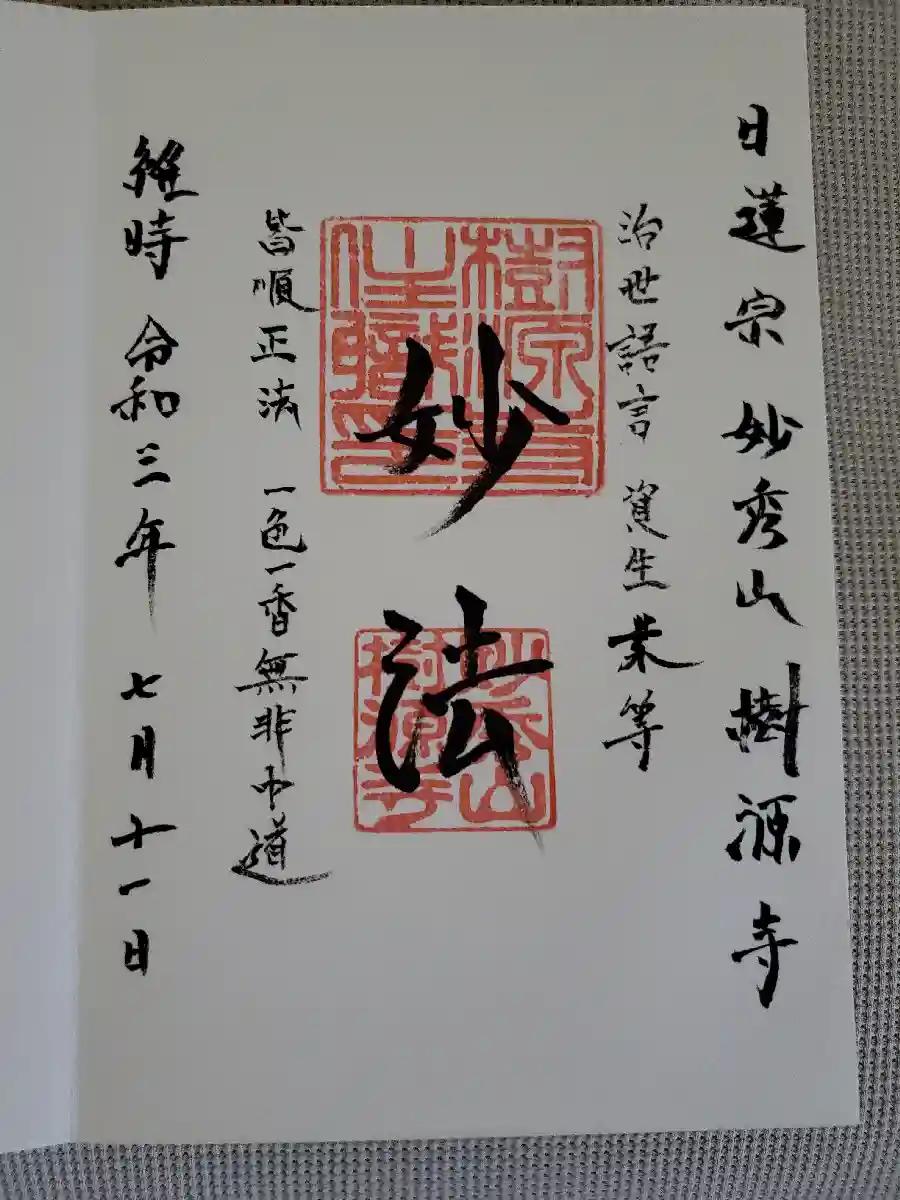 日蓮宗 妙秀山 樹源寺
治世語言 資生業等
妙法
樹源寺
住職印
妙秀山
樹源寺
皆順正法 一色一香無非中道
維時 令和三年 七月十一日